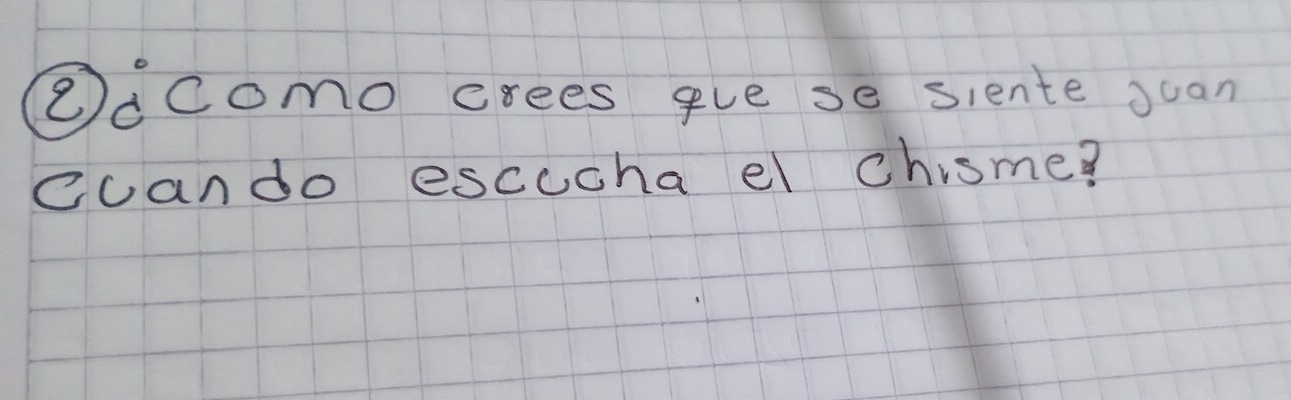 ② ¿Como crees que se siente juan
cuando escucha el chisme?